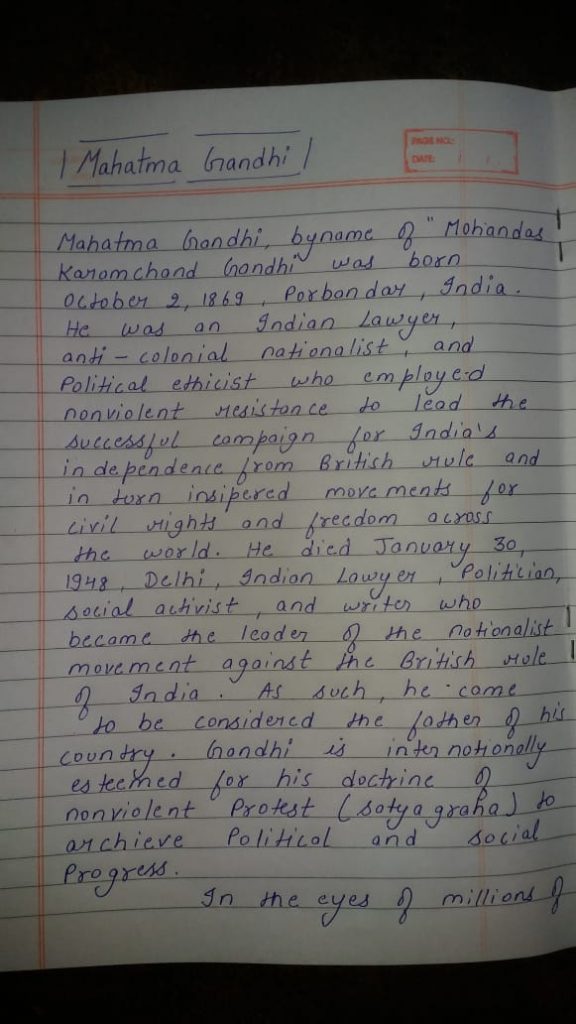 Mahatma Gandhi
PAGE NO.:
DATE:
Mahatma Gandhi, byname of "Mohandas
Karamchand Gandhi was born
October 2, 1869, Porbandar, India.
He was an Indian Lawyer,
anti-colonial nationalist, and
Political ethicist who employed
nonviolent resistance to lead the
successful campaign for India's
independence from British rule and
in turn insipered movements for
civil rights and freedom across
the world. He died January 30,
1948, Delhi, Indian Lawyer, Politician,
social activist, and writer who
became the leader of the nationalist
movement against the British rule
of India. As such, he came
to be considered the father of his
country. Gandhi is internationally
esteemed for his doctrine of
nonviolent Protest (satyagraha) to
archieve Political and social
Progress.
In the eyes of millions of